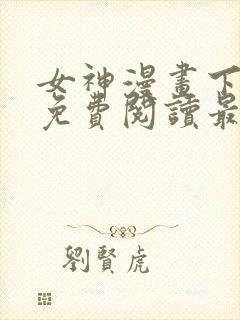 女神漫畫下
免費閱讀最
劉賢虎